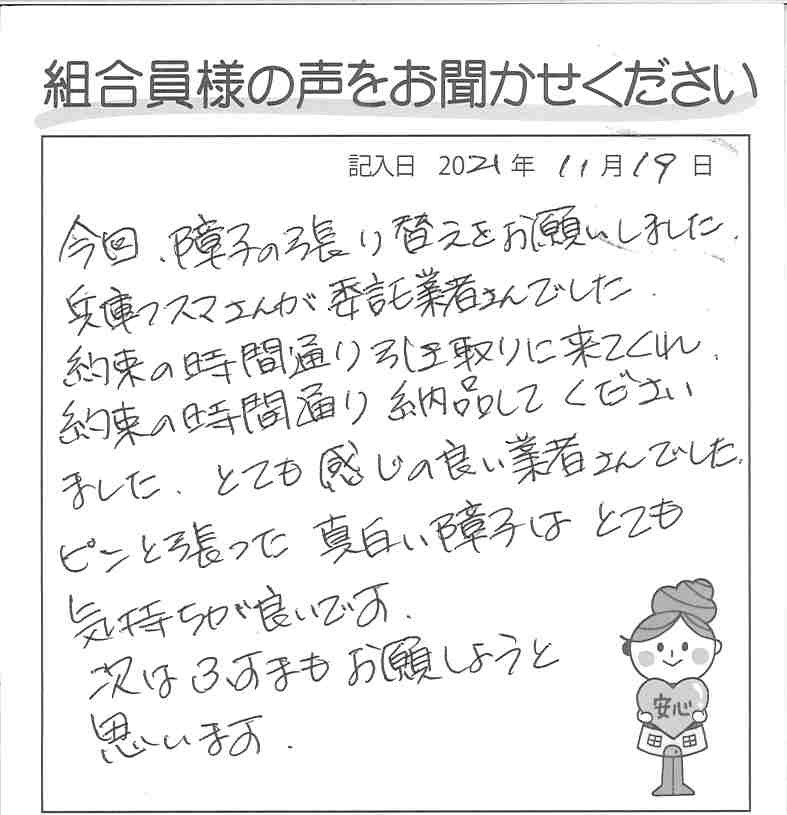 組合員様の声をお聞かせください
記入日 2021年 11月19日
今回、障子の張り替えをお願いしました.
兵庫フスマさんが委託業者さんでした.
約束の時間通り引き取りに来てくれ、
約束の時間通り納品してください
ました. とても感じの良い業者さんでした.
ピンと張った真白い障子はとても
気持ちが良いです.
次はふすまもお願しようと
思います.
安心